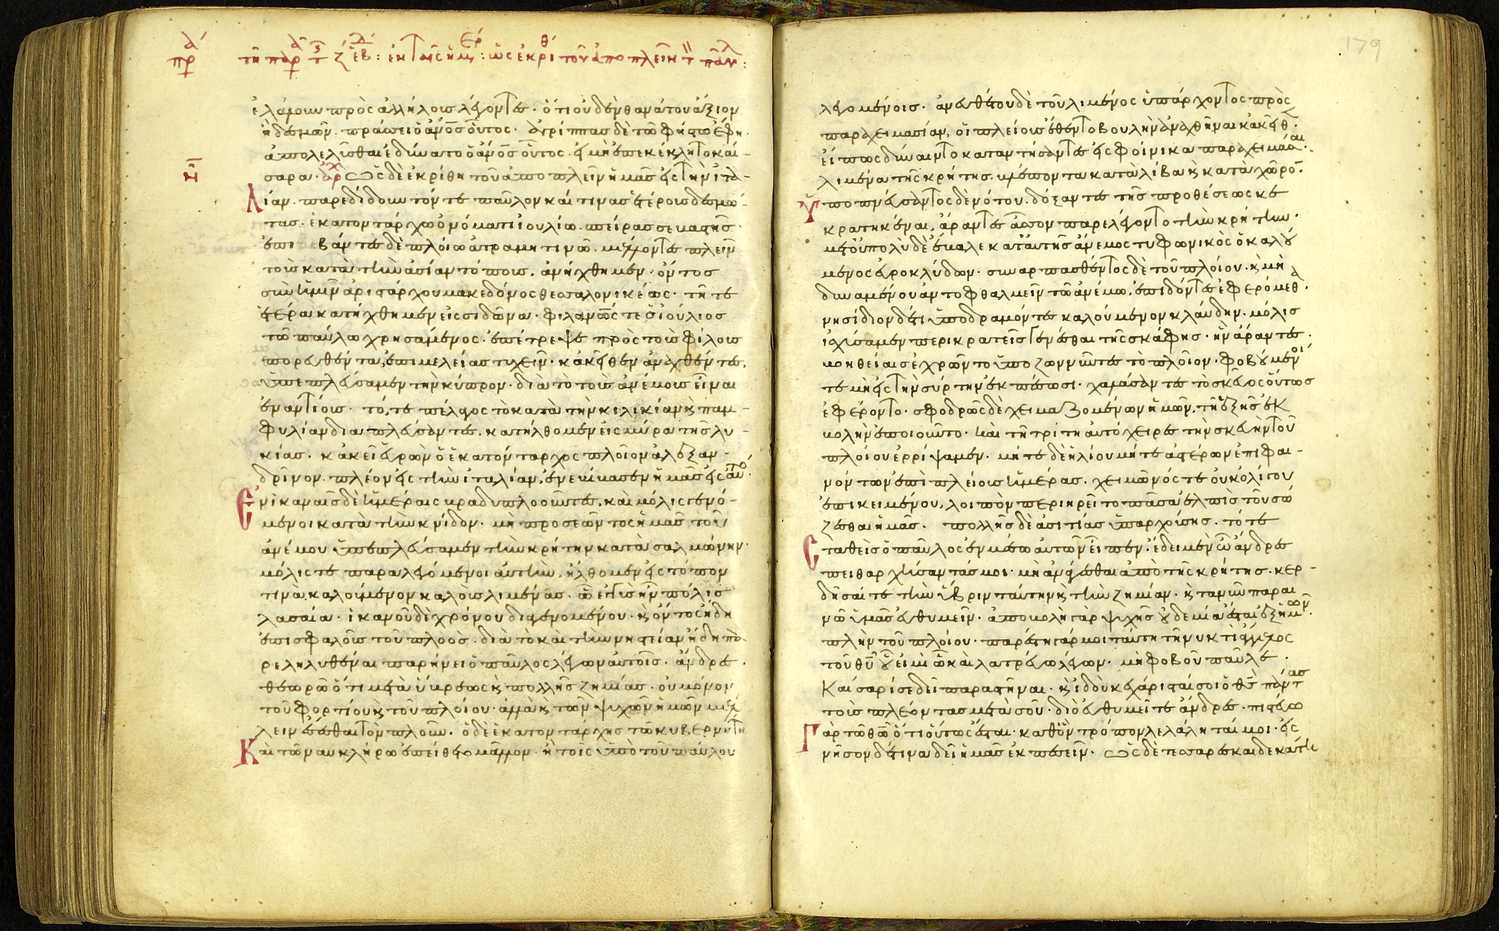 ἐλάλουν πρὸς ἀλλήλους λέγοντες· ὅτι οὐδὲν θανάτου ἄξιον
ἢ δεσμῶν πράσσει ὁ ἄνος οὗτος· ἀγρίππας δὲ τῶ φήστω ἔφη·
ἀπολελύσθαι ἐδύνατο ὁ ἄνος οὗτος· εἰ μὴ ἐπεκέκλητο καί-
σαρα· ὡς δὲ ἐκρίθη τοῦ ἀποπλεῖν ἡμᾶς εἰς τὴν ἰτα-
λίαν. παρεδίδουν τόν τε παῦλον καί τινας ἑτέρους δεσμώ-
τας. ἑκατοντάρχω ὀνόματι ἰουλίω. σπείρας σεβαστῆς·
ἐπιβάντες δὲ πλοίω ἀτραμητινῶ. μέλλοντες πλεῖν
τοὺς κατὰ τὴν ἀσίαν τόπους. ἀνήχθημεν· ὄντος
σὺν ἡμῖν ἀριστάρχου μακεδόνος θεσσαλονικέως· τῆ τε
ἑτέρα κατήχθημεν εἰς σιδῶνα. φιλανῶς τε ὁ ἰούλιος
τῶ παύλω χρησάμενος· ἐπέτρεψε πρὸς τοὺς φίλους
πορευθέντα, ἐπιμελείας τυχεῖν· κἀκεῖθεν ἀναχθέντες,
ὑπεπλεύσαμεν τὴν κύπρον· διὰ τὸ τοὺς ἀνέμους εἶναι
ἐναντίους· τό, τε πέλαγος τὸ κατὰ τὴν κιλικίαν καὶ παμ-
φυλίαν διαπλεύσαντες. κατήλθομεν εἰς μύρα τῆς λυ-
κίας· κἀκεῖ εὑρὼν ὁ ἑκατόνταρχος πλοῖον ἀλεξαν-
δρῖνον. πλέον εἰς τὴν ἰταλίαν, ἐνεβίβασεν ἡμᾶς εἰς αὐτό·
Ἐν ἱκαναῖς δὲ ἡμέραις βραδυπλοοῦντες, καὶ μόλις γενό-
μενοι κατὰ τὴν κνίδον· μὴ προσεῶντος ἡμᾶς τοῦ
ἀνέμου ὑπεπλεύσαμεν τὴν κρήτην κατὰ σαλμώνην·
μόλις τε παραλεγόμενοι αὐτὴν. ἤλθομεν εἰς τόπον
τινα καλούμενον καλοὺς λιμένας. ὧ ἐγγὺς ἦν πόλις
λασαία· ἱκανοῦ δὲ χρόνου διαγενομένου· καὶ ὄντος ἤδη
ἐπισφαλοῦς τοῦ πλοὸς· διὰ τὸ καὶ τὴν νηστείαν ἤδη πα-
ρεληλυθέναι παρήνει ὁ παῦλος λέγων αὐτοῖς· ἄνδρες.
θεωρῶ ὅτι μετὰ ὕβρεως καὶ πολλῆς ζημίας· οὐ μόνον
τοῦ φόρτου καὶ τοῦ πλοίου· ἀλλὰ καὶ τῶν ψυχῶν ἡμῶν μέλ-
λειν ἔσεσθαι τὸν πλοῦν· ὁ δὲ ἑκατοντάρχης τῶ κυβερνήτη
Καὶ τῶ ναυκλήρω ἐπείθετο μᾶλλον· ἢ τοῖς ὑπὸ τοῦ παύλου
179
λεγομένοις· ἀνευθέτου δὲ τοῦ λιμένος ὑπάρχοντος πρὸς
παραχειμασίαν, οἱ πλείους ἔθεντο βουλὴν ἀναχθῆναι κἀκεῖθεν·
εἴ πως δύναιντο καταντήσαντες εἰς φοίνικα παραχειμάσαι.
λιμένα τῆς κρήτης. βλέποντα κατὰ λίβα καὶ κατὰ χῶρον·
Ὑποπνεύσαντος δὲ νότου. δόξαντες τῆς προθέσεως κε-
κρατηκέναι, ἄραντες ἆσσον παρελέγοντο τὴν κρήτην·
μετ' οὐ πολὺ δὲ ἔβαλε κατ' αὐτῆς ἄνεμος τυφωνικὸς ὁ καλού-
μενος εὐροκλύδων· συναρπασθέντος δὲ τοῦ πλοίου. καὶ μὴ
δυναμένου ἀντοφθαλμεῖν τῶ ἀνέμω, ἐπιδόντες ἐφερόμεθα·
νησίδιον δέ τι ὑποδραμόντες καλούμενον κλαύδην· μόλις
ἰσχύσαμεν περικρατεῖς γενέσθαι τῆς σκάφης· ἣν ἄραντες.
βοηθείαις ἐχρῶντο ὑποζωννῦντες τὸ πλοῖον· φοβούμενοί
τε μὴ εἰς τὴν σύρτην ἐκπέσωσι· χαλάσαντες τὸ σκεῦος οὕτως
ἐφέροντο· σφοδρῶς δὲ χειμαζομένων ἡμῶν, τῆ ἑξῆς ἐκ-
βολὴν ἐποιοῦντο· καὶ τῆ τρίτη αὐτόχειρες τὴν σκευὴν τοῦ
πλοίου ἐρρίψαμεν. μήτε δὲ ἡλίου μήτε ἀστέρων ἐπιφαι-
νόντων ἐπὶ πλείους ἡμέρας. χειμῶνός τε οὐκ ὀλίγου
ἐπικειμένου, λοιπὸν περιηρεῖτο πᾶσα ἐλπὶς τοῦ σώ-
ζεσθαι ἡμᾶς. πολλῆς δὲ ἀσιτίας ὑπαρχούσης. τότε
Σταθεὶς ὁ παῦλος ἐν μέσω αὐτῶν εἶπεν· ἔδει μὲν ὦ ἄνδρες
πειθαρχήσαντάς μοι· μὴ ἀνάγεσθαι ἀπὸ τῆς κρήτης. κερ-
δῆσαί τε τὴν ὕβριν ταύτην καὶ τὴν ζημίαν. καὶ τανῦν παραι-
νῶ ὑμᾶς εὐθυμεῖν. ἀποβολὴ γὰρ ψυχῆς οὐδεμία ἔσται ἐξ ἡμῶν·
πλὴν τοῦ πλοίου· παρέστη γάρ μοι ταύτη τῆ νυκτὶ ἄγγελος
τοῦ θυ οὗ εἰμὶ ὧ καὶ λατρεύω λέγων· μὴ φοβοῦ παῦλε.
Καίσαρί σε δεῖ παραστῆναι· καὶ ἰδοὺ κεχάρισταί σοι ὁ θς πάντας
τοὺς πλέοντας μετὰ σοῦ· διὸ εὐθυμεῖτε ἄνδρες· πιστεύω
Γὰρ τῶ θῶ ὅτι οὕτως ἔσται· καθ' ὃν τρόπον λελάληταί μοι· εἰς
νῆσον δέ τινα δεῖ ἡμᾶς ἐκπεσεῖν· ὡς δὲ τεσσαρεσκαιδεκάτη